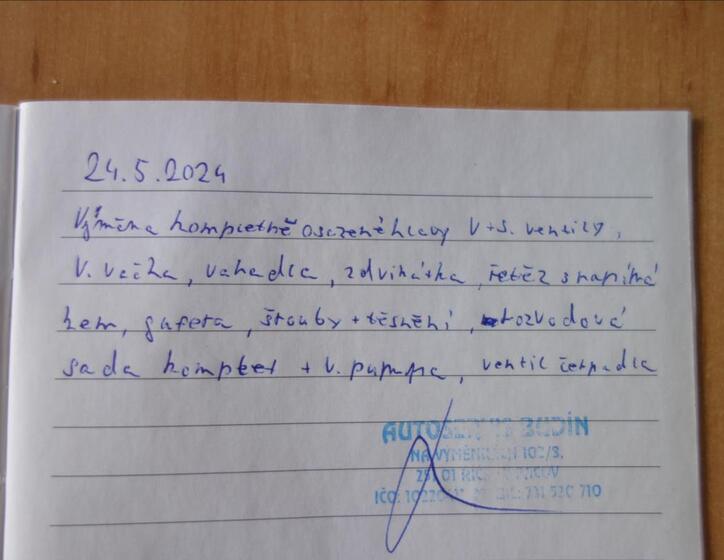 24.5.2024
Výměna kompletně osazené hlavy V+S. ventily,
V. vačka, vahadla, zdvihátka, řetěz s napíná
kem, gufera, šrouby + těsnění, rozvodová
sada komplet + V. pumpa, ventil čerpadla
AUTOSERVIS BUDÍN
102/3,
IČO: TEL: 731 520 710